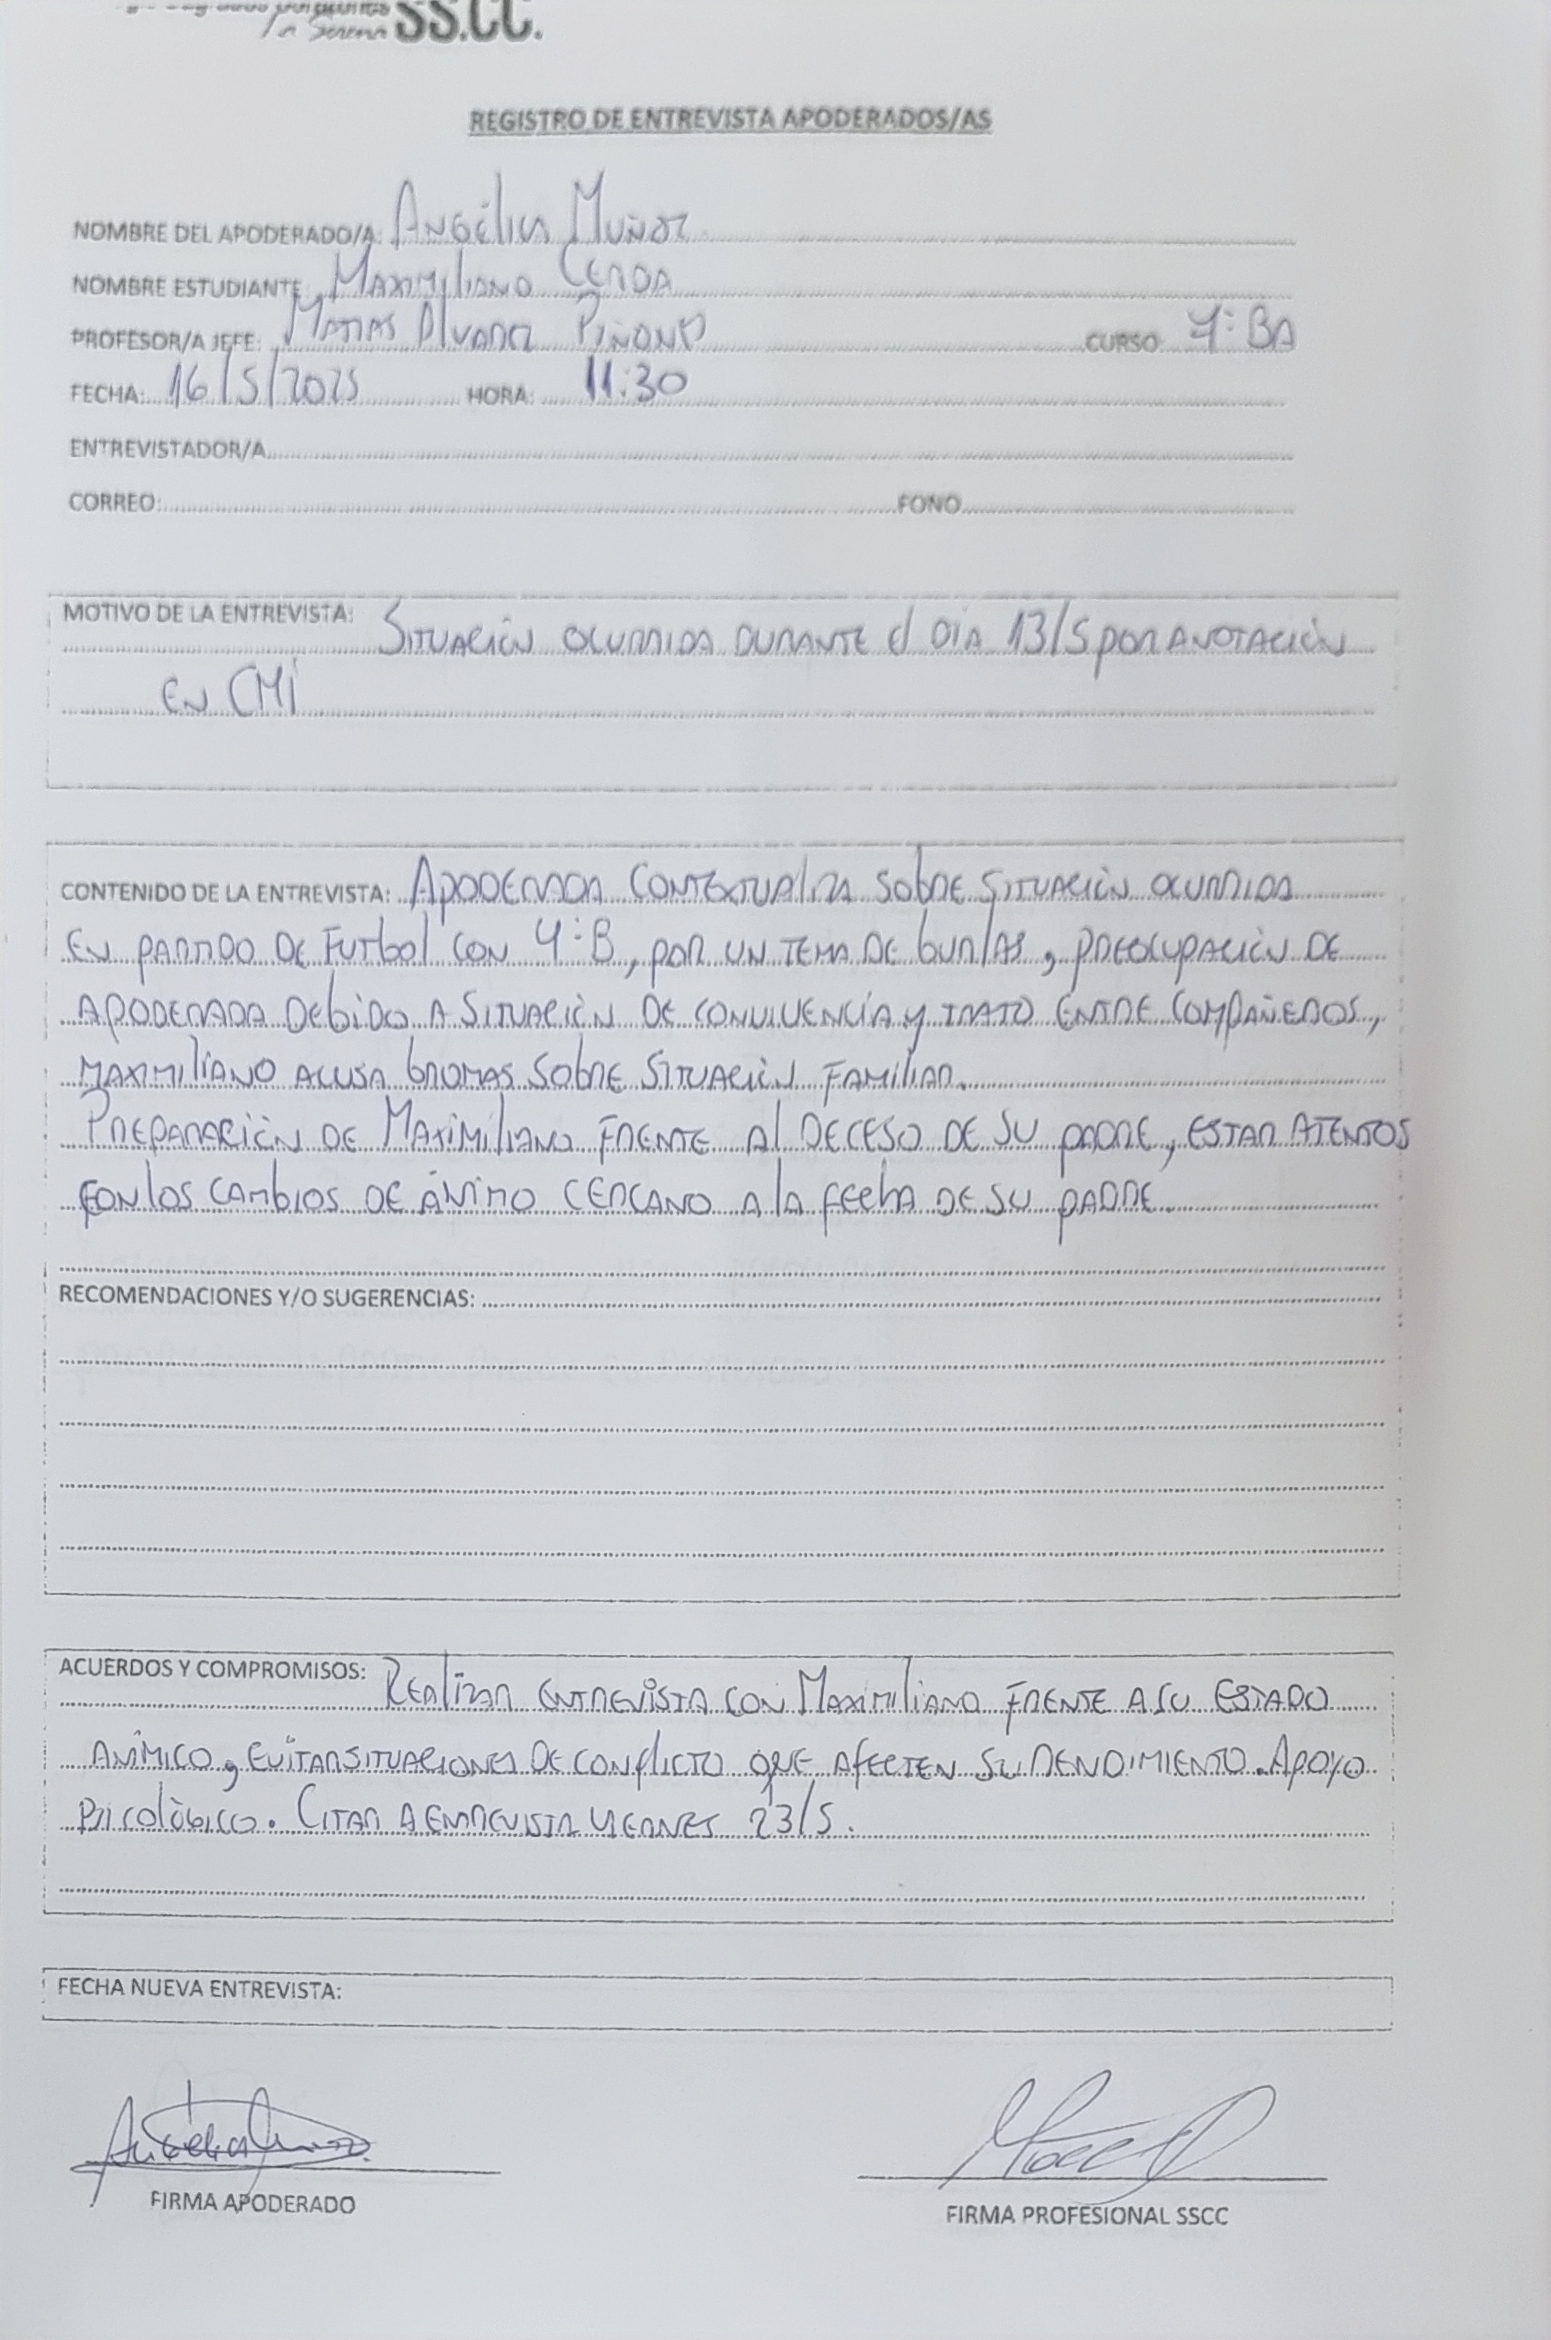 La Serena SS.CC.
REGISTRO DE ENTREVISTA APODERADOS/AS
NOMBRE DEL APODERADO/A: ANGÉLICA MUÑOZ
NOMBRE ESTUDIANTE MAXIMILIANO CERDA
PROFESOR/A JEFE: MATIAS ALVAREZ PIÑONES CURSO 4°BA
FECHA: 16/5/2025 HORA: 11:30
ENTREVISTADOR/A
CORREO: FONO
MOTIVO DE LA ENTREVISTA: SITUACIÓN OCURRIDA DURANTE el DIA 13/5 POR ANOTACIÓN
EN CMI
CONTENIDO DE LA ENTREVISTA: APODERADA CONTEXTUALIZA SOBRE SITUACIÓN OCURRIDA
EN PARTIDO DE FUTBOL CON 4°B, POR UN TEMA DE BURLAS, PREOCUPACIÓN DE
APODERADA DEBIDO A SITUACIÓN DE CONVIVENCÍA Y TRATO ENTRE COMPAÑEROS,
MAXIMILIANO ACUSA BROMAS SOBRE SITUACIÓN FAMILIAR.
PREPARACIÓN DE MAXIMILIANO FRENTE AL DECESO DE SU PADRE, ESTAR ATENTOS
CON LOS CAMBIOS DE ÁNIMO CERCANO A LA FECHA DE SU PADRE.
RECOMENDACIONES Y/O SUGERENCIAS:
ACUERDOS Y COMPROMISOS: REALIZAR ENTREVISTA CON MAXIMILIANO FRENTE A SU ESTADO
ANÍMICO, EVITAR SITUACIONES DE CONFLICTO QUE AFECTEN SU RENDIMIENTO. APOYO
PSICOLÓGICO. CITAR A ENTREVISTA VIERNES 23/5.
FECHA NUEVA ENTREVISTA:
FIRMA APODERADO
FIRMA PROFESIONAL SSCC